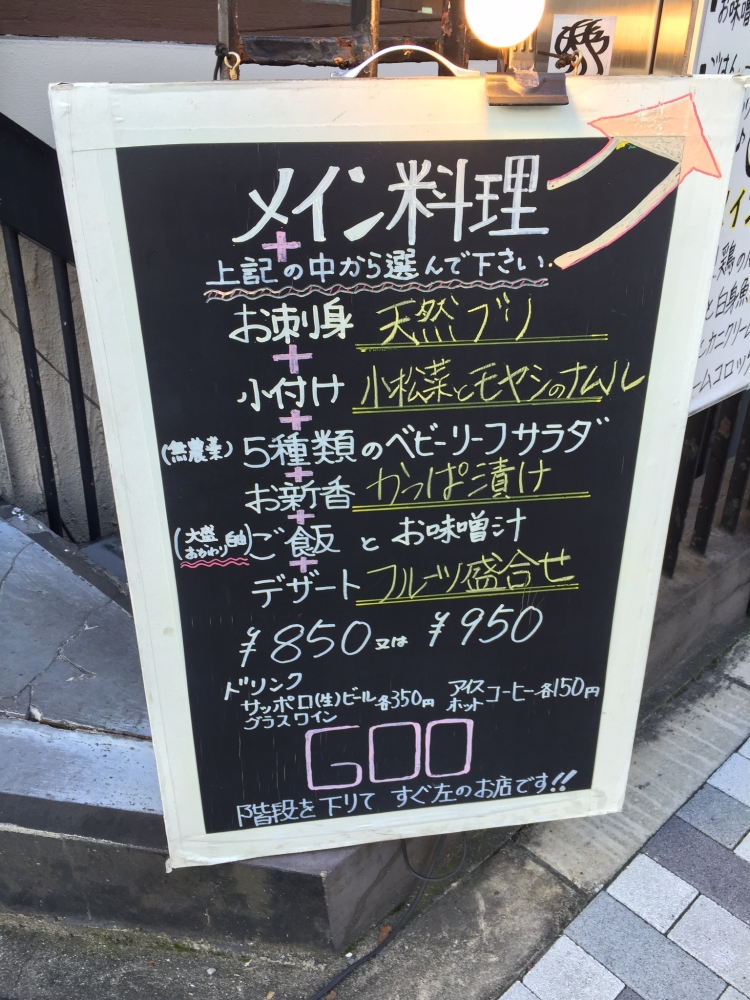 メイン料理
+
上記の中から選んで下さい
お刺身 天然ブリ
+
小付け 小松菜とモヤシのナムル
+
(無農薬) 5種類のベビーリーフサラダ
+
お新香 かっぱ漬け
+
(大盛 おかわり 自由) ご飯 と お味噌汁
+
デザート フルーツ盛合せ
¥850 又は ¥950
ドリンク
サッポロ(生)ビール 各350円
グラスワイン
アイス
ホット コーヒー各150円
GOO
階段を下りて すぐ左のお店です!!
お味噌
ごはん
鶏の
と白身魚
カニクリーム
ームコロッ